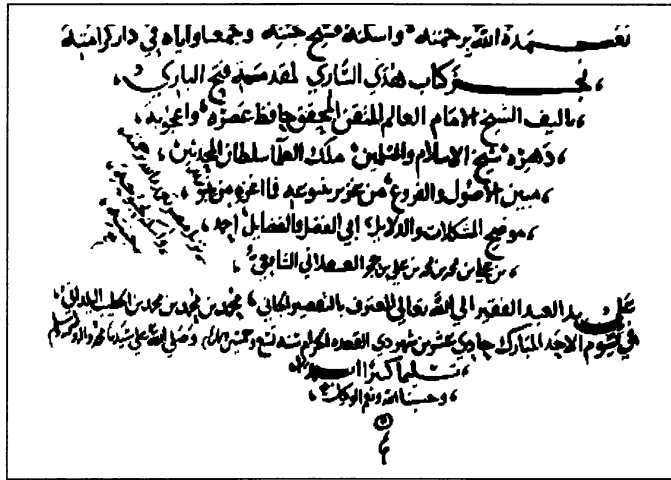 تغمده الله برحمته واسكنه فسيح جنته وجمعنا واياه في دار كرامته
نجز كتاب هدي الساري لمقدمة فتح الباري
تاليف الشيخ الامام العالم المتقن المحقق حافظ عصره واعجوبة
دهره شيخ الاسلام والمسلمين ملك العلما سلطان المحدثين
مبين الاصول والفروع من عزيز بنوعيه فا اعزه من
موضح المشكلات والدلايل ابي الفضل والفضايل احمد
بن علي بن محمد بن محمد بن علي بن حجر العسقلاني الشافعي
علي يد العبد الفقير الي الله تعالي المعترف بالتقصير محمد بن محمد بن محمد بن الخطيب
في يوم الاحد المبارك حادي عشرين شهر ذي القعده الحرام سنه تسع وخمسين وصلي الله علي سيدنا محمد واله وسلم
تسليما كثيرا
وحسبنا الله ونعم الوكيل